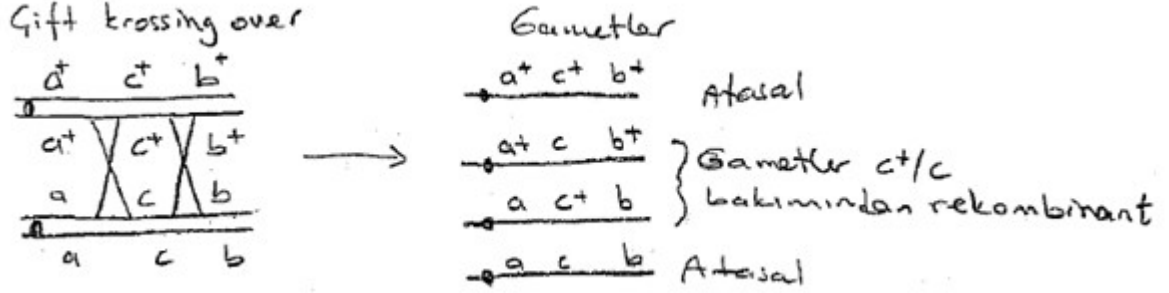 Çift krossing over
a+ c+ b+
a+ c+ b+
a c b
a c b
Gametler
a+ c+ b+ Atasal
a+ c b+
a c+ b
Gametler c+/c
bakımından rekombinant
a c b Atasal